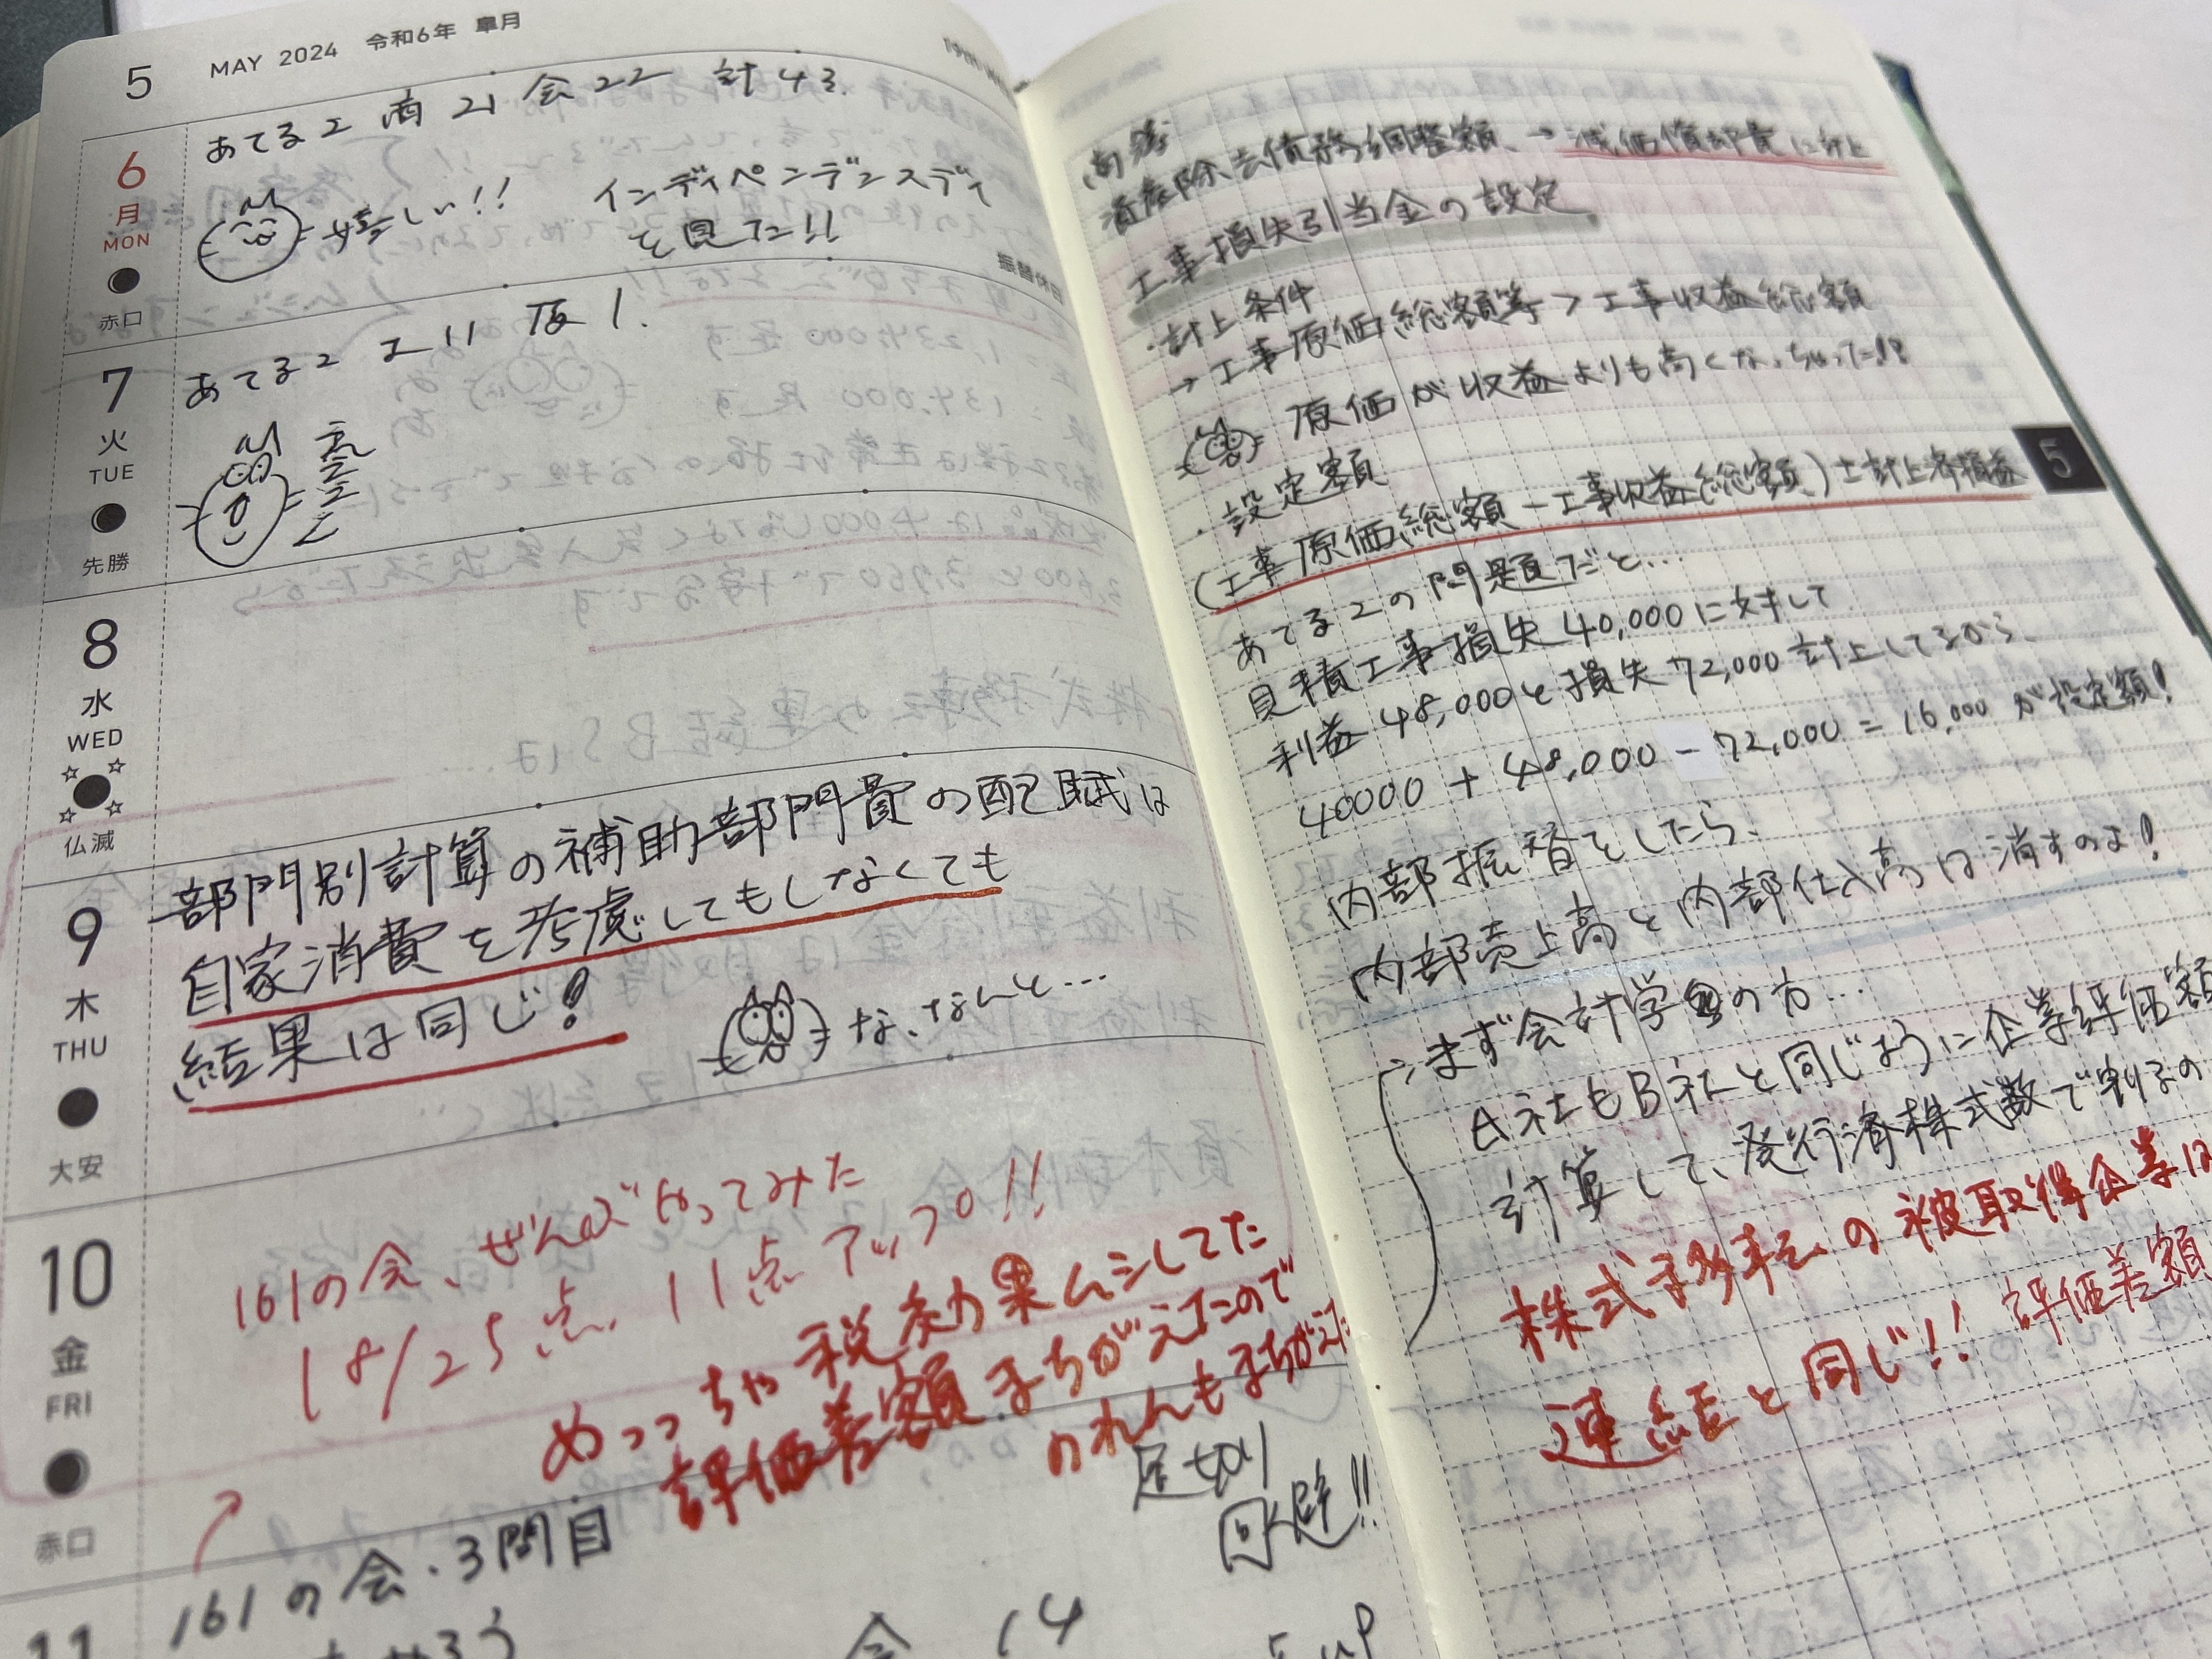 5 MAY 2024 令和6年 皐月
6 月 MON 赤口
あてる2 商21 会22 計43.
嬉しい!! インディペンデンスディ
を見た!!
振替休日
7 火 TUE 先勝
あてる2 工11 原1.
8 水 WED 仏滅
9 木 THU 大安
部門別計算の補助部門費の配賦は
自家消費を考慮してもしなくても
結果は同じ!
な、なんと…
10 金 FRI 赤口
161の会、ぜんぶやってみた
18/25点、11点アップ!!
めっっちゃ税効果ムシしてた
評価差額まちがえたので
のれんもまちがえた
足切り
回避!!
11
161の会・3問目
会 14
商簿
資産除去債務調整額、→減価償却費に計上
工事損失引当金の設定
・計上条件
→工事原価総額等>工事収益総額
原価が収益よりも高くなっちゃった!?
・設定額
(工事原価総額-工事収益総額)±計上済損益
あてる2の問題だと…
見積工事損失40,000に対して
利益48,000と損失72,000計上してるから、
40000+48,000-72,000=16,000が設定額!
内部振替をしたら、
内部売上高と内部仕入高は消すのよ!
まず会計学の方…
A社もB社と同じように企業評価額
計算して、発行済株式数で割るの
株式移転の被取得企業は
連結と同じ!! 評価差額
5